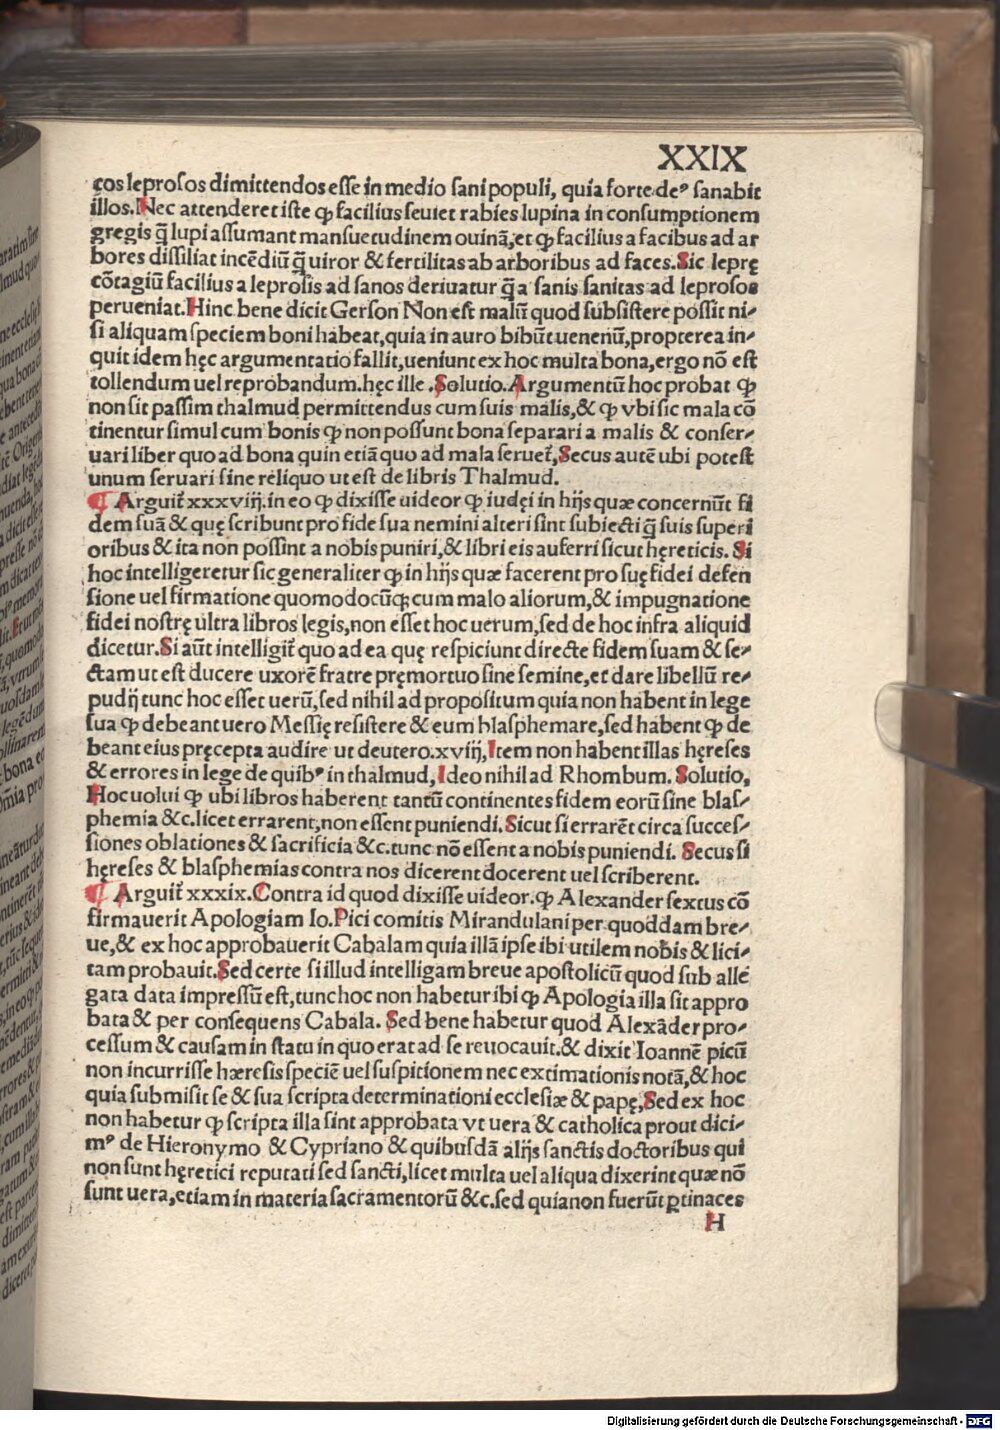 XXIX
cos leprosos dimittendos esse in medio sani populi, quia forte deꝰ sanabit
illos. Nec attenderet iste ꝙ facilius seuiet rabies lupina in consumptionem
gregis q̃ lupi assumant mansuetudinem ouinã, et ꝙ facilius a facibus ad ar
bores dissiliat incẽdiũ q̃ uiror & fertilitas ab arboribus ad faces. Sic leprę
cõtagiũ facilius a leprosis ad sanos deriuatur q̃ a sanis sanitas ad leprosos
perueniat. Hinc bene dicit Gerson Non est malũ quod subsistere possit ni⸗
si aliquam speciem boni habeat, quia in auro bibũt uenenũ, propterea in⸗
quit idem hęc argumentatio fallit, ueniunt ex hoc multa bona, ergo nõ est
tollendum uel reprobandum. hęc ille. Solutio. Argumentũ hoc probat ꝙ
non sit passim thalmud permittendus cum suis malis, & ꝙ vbi sic mala cõ
tinentur simul cum bonis ꝙ non possunt bona separari a malis & conser⸗
uari liber quo ad bona quin etiã quo ad mala seruet̃, Secus autẽ ubi potest
unum seruari sine reliquo ut est de libris Thalmud.
¶ Arguit̃ xxxviij. in eo ꝙ dixisse uideor ꝙ iudęi in hijs quæ concernũt fi
dem suã & quę scribunt pro fide sua nemini alteri sint subiecti q̃ suis superi
oribus & ita non possint a nobis puniri, & libri eis auferri sicut hęreticis. Si
hoc intelligeretur sic generaliter ꝙ in hijs quæ facerent pro suę fidei defen
sione uel firmatione quomodocũqꝫ cum malo aliorum, & impugnatione
fidei nostrę ultra libros legis, non esset hoc uerum, sed de hoc infra aliquid
dicetur. Si aũt intelligit̃ quo ad ea quę respiciunt directe fidem suam & se⸗
ctam ut est ducere uxorẽ fratre pręmortuo sine semine, et dare libellũ re⸗
pudij tunc hoc esset uerũ, sed nihil ad propositum quia non habent in lege
sua ꝙ debeant uero Messię resistere & eum blasphemare, sed habent ꝙ de
beant eius pręcepta audire ut deutero. xviij, Item non habent illas hęreses
& errores in lege de quibꝰ in thalmud, Ideo nihil ad Rhombum. Solutio,
Hoc uolui ꝙ ubi libros haberent tantũ continentes fidem eorũ sine blas⸗
phemia &c. licet errarent, non essent puniendi. Sicut si errarẽt circa succes⸗
siones oblationes & sacrificia &c. tunc nõ essent a nobis puniendi. Secus si
hęreses & blasphemias contra nos dicerent docerent uel scriberent.
¶ Arguit̃ xxxix. Contra id quod dixisse uideor. ꝙ Alexander sextus cõ
firmauerit Apologiam Io. Pici comitis Mirandulani per quoddam bre⸗
ue, & ex hoc approbauerit Cabalam quia illã ipse ibi utilem nobis & lici⸗
tam probauit. Sed certe si illud intelligam breue apostolicũ quod sub alle
gata data impressũ est, tunc hoc non habetur ibi ꝙ Apologia illa sit appro
bata & per consequens Cabala. Sed bene habetur quod Alexãder pro⸗
cessum & causam in statu in quo erat ad se reuocauit. & dixit Ioannẽ picũ
non incurrisse hæresis speciẽ uel suspitionem nec extimationis notã, & hoc
quia submisit se & sua scripta determinationi ecclesiæ & papę, Sed ex hoc
non habetur ꝙ scripta illa sint approbata vt uera & catholica prout dici⸗
mꝰ de Hieronymo & Cypriano & quibusdã alijs sanctis doctoribus qui
non sunt hęretici reputati sed sancti, licet multa uel aliqua dixerint quæ nõ
sunt uera, etiam in materia sacramentorũ &c. sed quia non fuerũt ꝑtinaces
H
Digitalisierung gefördert durch die Deutsche Forschungsgemeinschaft - DFG